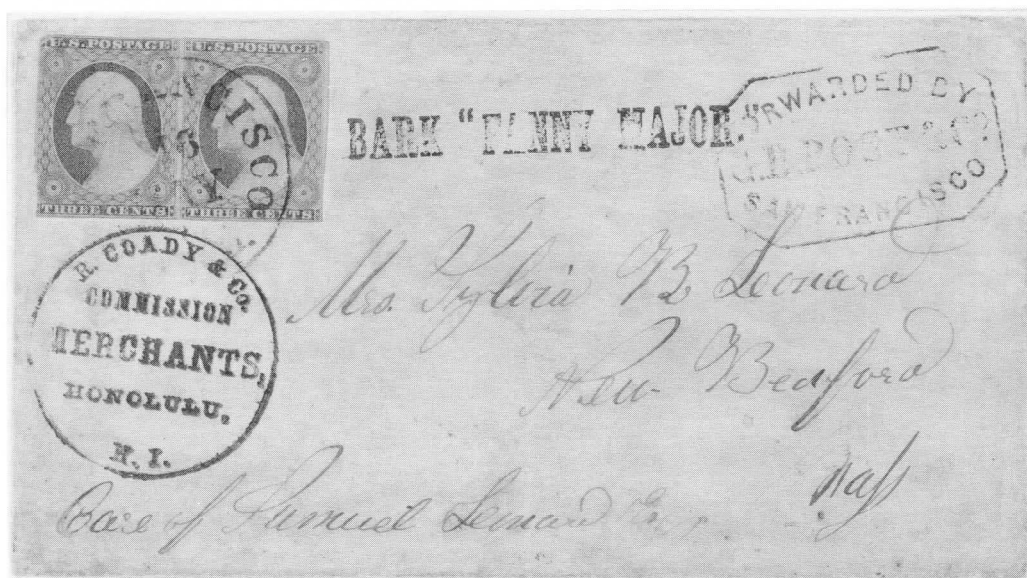 U.S. POSTAGE
THREE CENTS
U.S. POSTAGE
THREE CENTS
CISCO
15
BARK "FANNY MAJOR."
FORWARDED BY
G.B. POST & Co.
SAN FRANCISCO
R. COADY & Co.
COMMISSION
MERCHANTS,
HONOLULU,
H. I.
Mrs. Sylvia B Leonard
New Bedford
Mass
Care of Samuel Leonard Esq